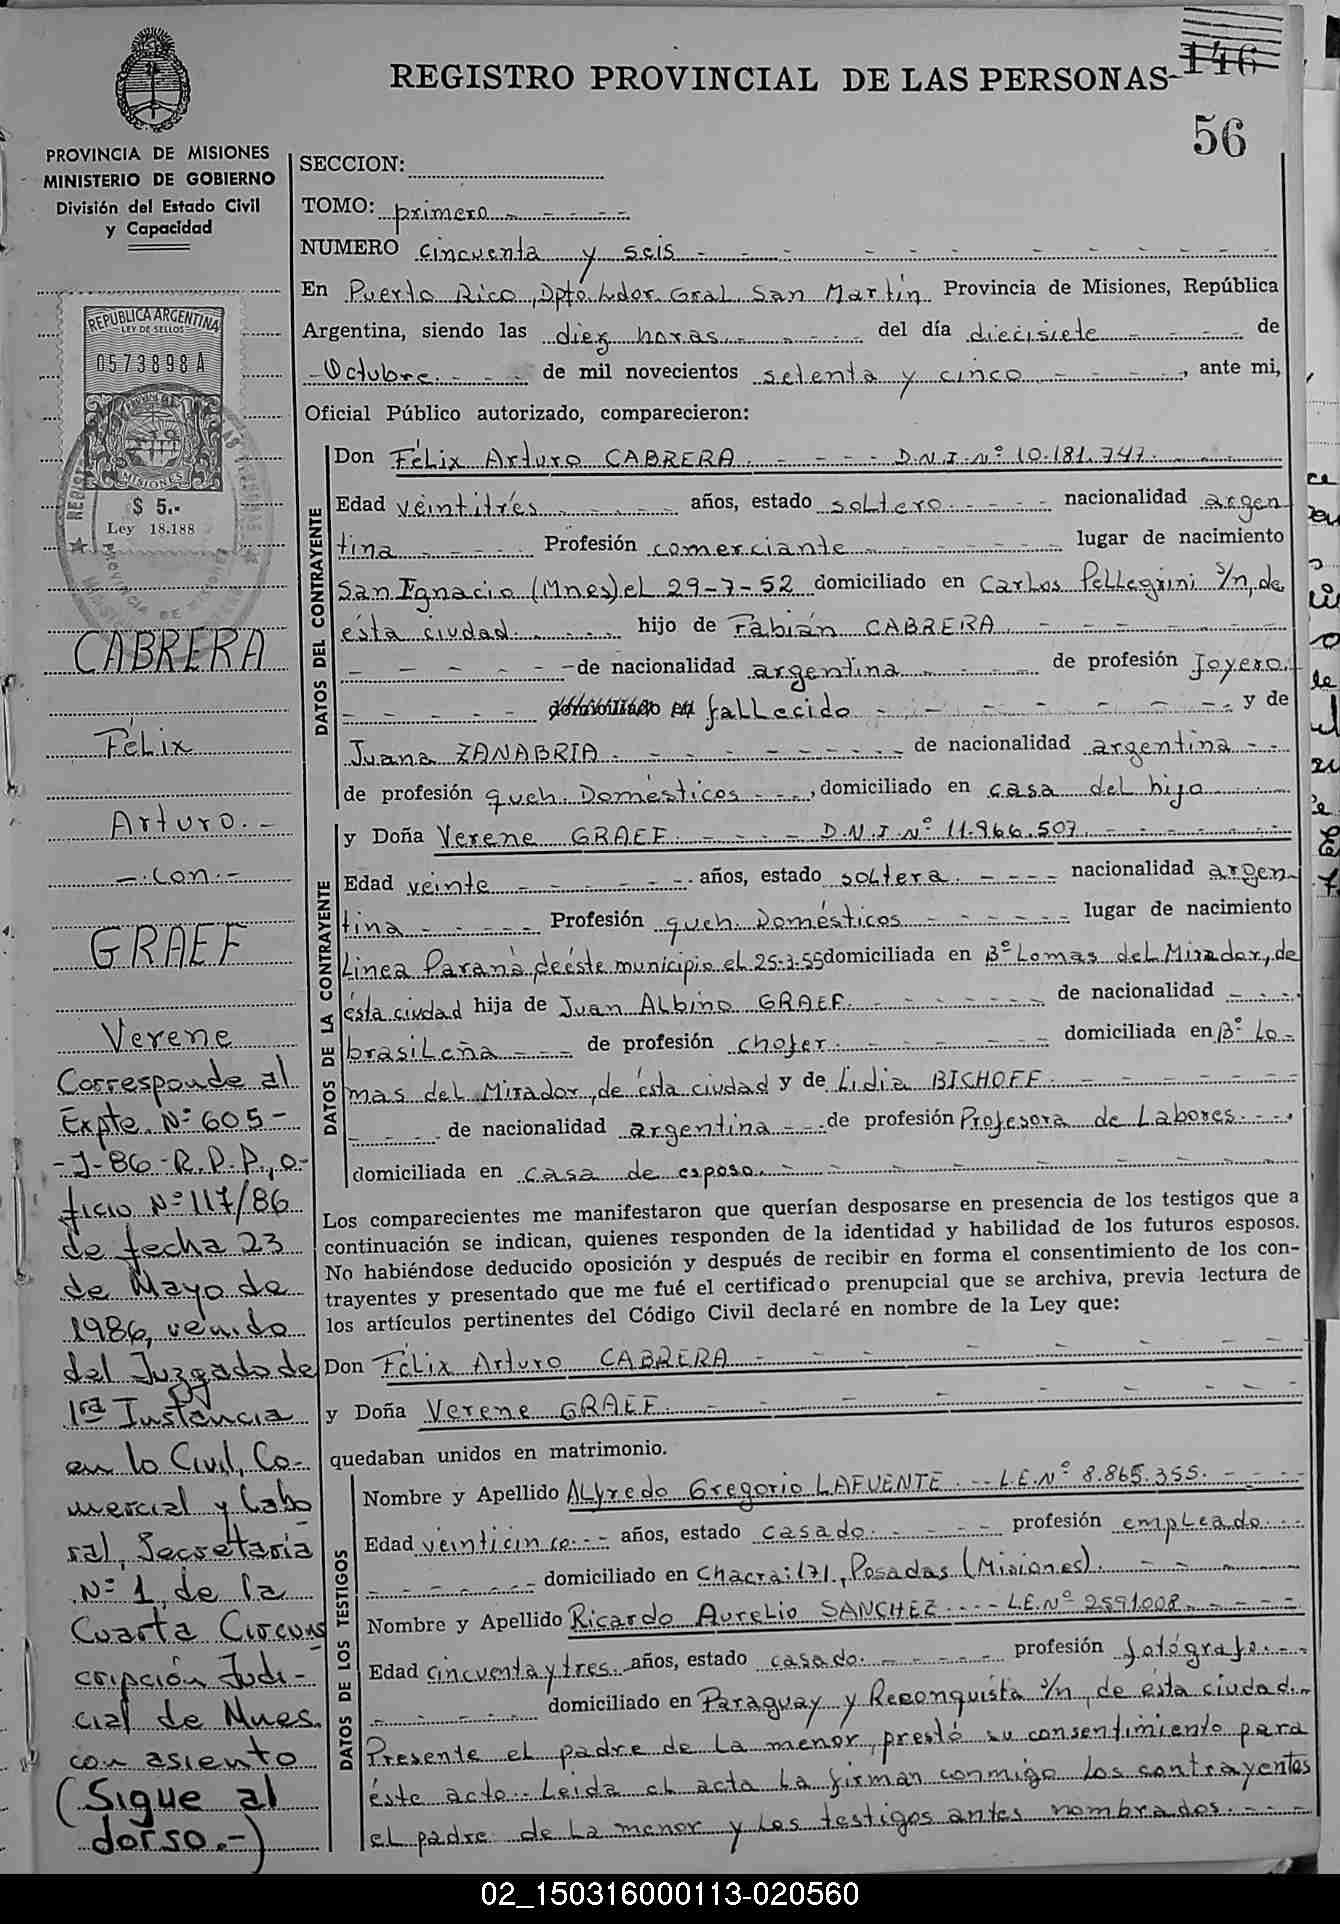 REGISTRO PROVINCIAL DE LAS PERSONAS-
146
56
PROVINCIA DE MISIONES
MINISTERIO DE GOBIERNO
División del Estado Civil
y Capacidad
REPUBLICA ARGENTINA
LEY DE SELLOS
0573898 A
MISIONES
$ 5.-
Ley 18.188
CABRERA
Félix
Arturo.-
-.con.-
GRAEF
Verene
Corresponde al
Expte. Nº 605-
-J-86-R.P.P., o-
ficio Nº 117/86
de fecha 23
de Mayo de
1986, venido
del Juzgado de
1ra Instancia
en lo Civil, Co-
mercial y Labo
ral, Secretaria
Nº 1, de la
Cuarta Circuns
cripción Judi-
cial de Mnes.
con asiento
(Sigue al
dorso.-)
SECCION:
TOMO: primero
NUMERO cincuenta y seis
En Puerto Rico, Dpto. Ldor. Gral. San Martín Provincia de Misiones, República
Argentina, siendo las diez horas del día diecisiete de
Octubre de mil novecientos setenta y cinco, ante mi,
Oficial Público autorizado, comparecieron:
DATOS DEL CONTRAYENTE
Don Félix Arturo CABRERA. - - - - D.N.I. Nº 10.181.747.
Edad veintitrés años, estado soltero nacionalidad argen
tina Profesión comerciante lugar de nacimiento
San Ignacio (Mnes) el 29-7-52 domiciliado en Carlos Pellegrini s/n, de
ésta ciudad hijo de Fabián CABRERA
de nacionalidad argentina de profesión Joyero.
domiciliado en fallecido y de
Juana ZANABRIA de nacionalidad argentina
de profesión queh. Domésticos, domiciliado en casa del hijo
DATOS DE LA CONTRAYENTE
y Doña Verene GRAEF. - - - - D.N.I. Nº 11.966.507.
Edad veinte años, estado soltera. nacionalidad argen-
tina Profesión queh. Domésticos lugar de nacimiento
Linea Paraná, de éste municipio el 25-3-55 domiciliada en Bº Lomas del Mirador, de
ésta ciudad hija de Juan Albino GRAEF. de nacionalidad
brasileña de profesión chofer. domiciliada en Bº Lo-
mas del Mirador, de ésta ciudad y de Lidia BICHOFF.
de nacionalidad argentina de profesión Profesora de Labores.
domiciliada en casa de esposo.
Los comparecientes me manifestaron que querían desposarse en presencia de los testigos que a
continuación se indican, quienes responden de la identidad y habilidad de los futuros esposos.
No habiéndose deducido oposición y después de recibir en forma el consentimiento de los con-
trayentes y presentado que me fué el certificado prenupcial que se archiva, previa lectura de
los artículos pertinentes del Código Civil declaré en nombre de la Ley que:
Don Félix Arturo CABRERA
y Doña Verene GRAEF.
quedaban unidos en matrimonio.
DATOS DE LOS TESTIGOS
Nombre y Apellido Alfredo Gregorio LAFUENTE. -- L.E. Nº 8.865.355.
Edad veinticinco. años, estado casado. profesión empleado.
domiciliado en Chacra: 171, Posadas (Misiones).
Nombre y Apellido Ricardo Aurelio SANCHEZ. --- L.E. Nº 2591008.
Edad cincuenta y tres. años, estado casado. profesión fotógrafo.
domiciliado en Paraguay y Reconquista s/n, de ésta ciudad.-
Presente el padre de la menor, prestó su consentimiento para
éste acto. Leida el acta la firman conmigo los contrayentes
el padre de la menor y los testigos antes nombrados. - - -
02_150316000113-020560